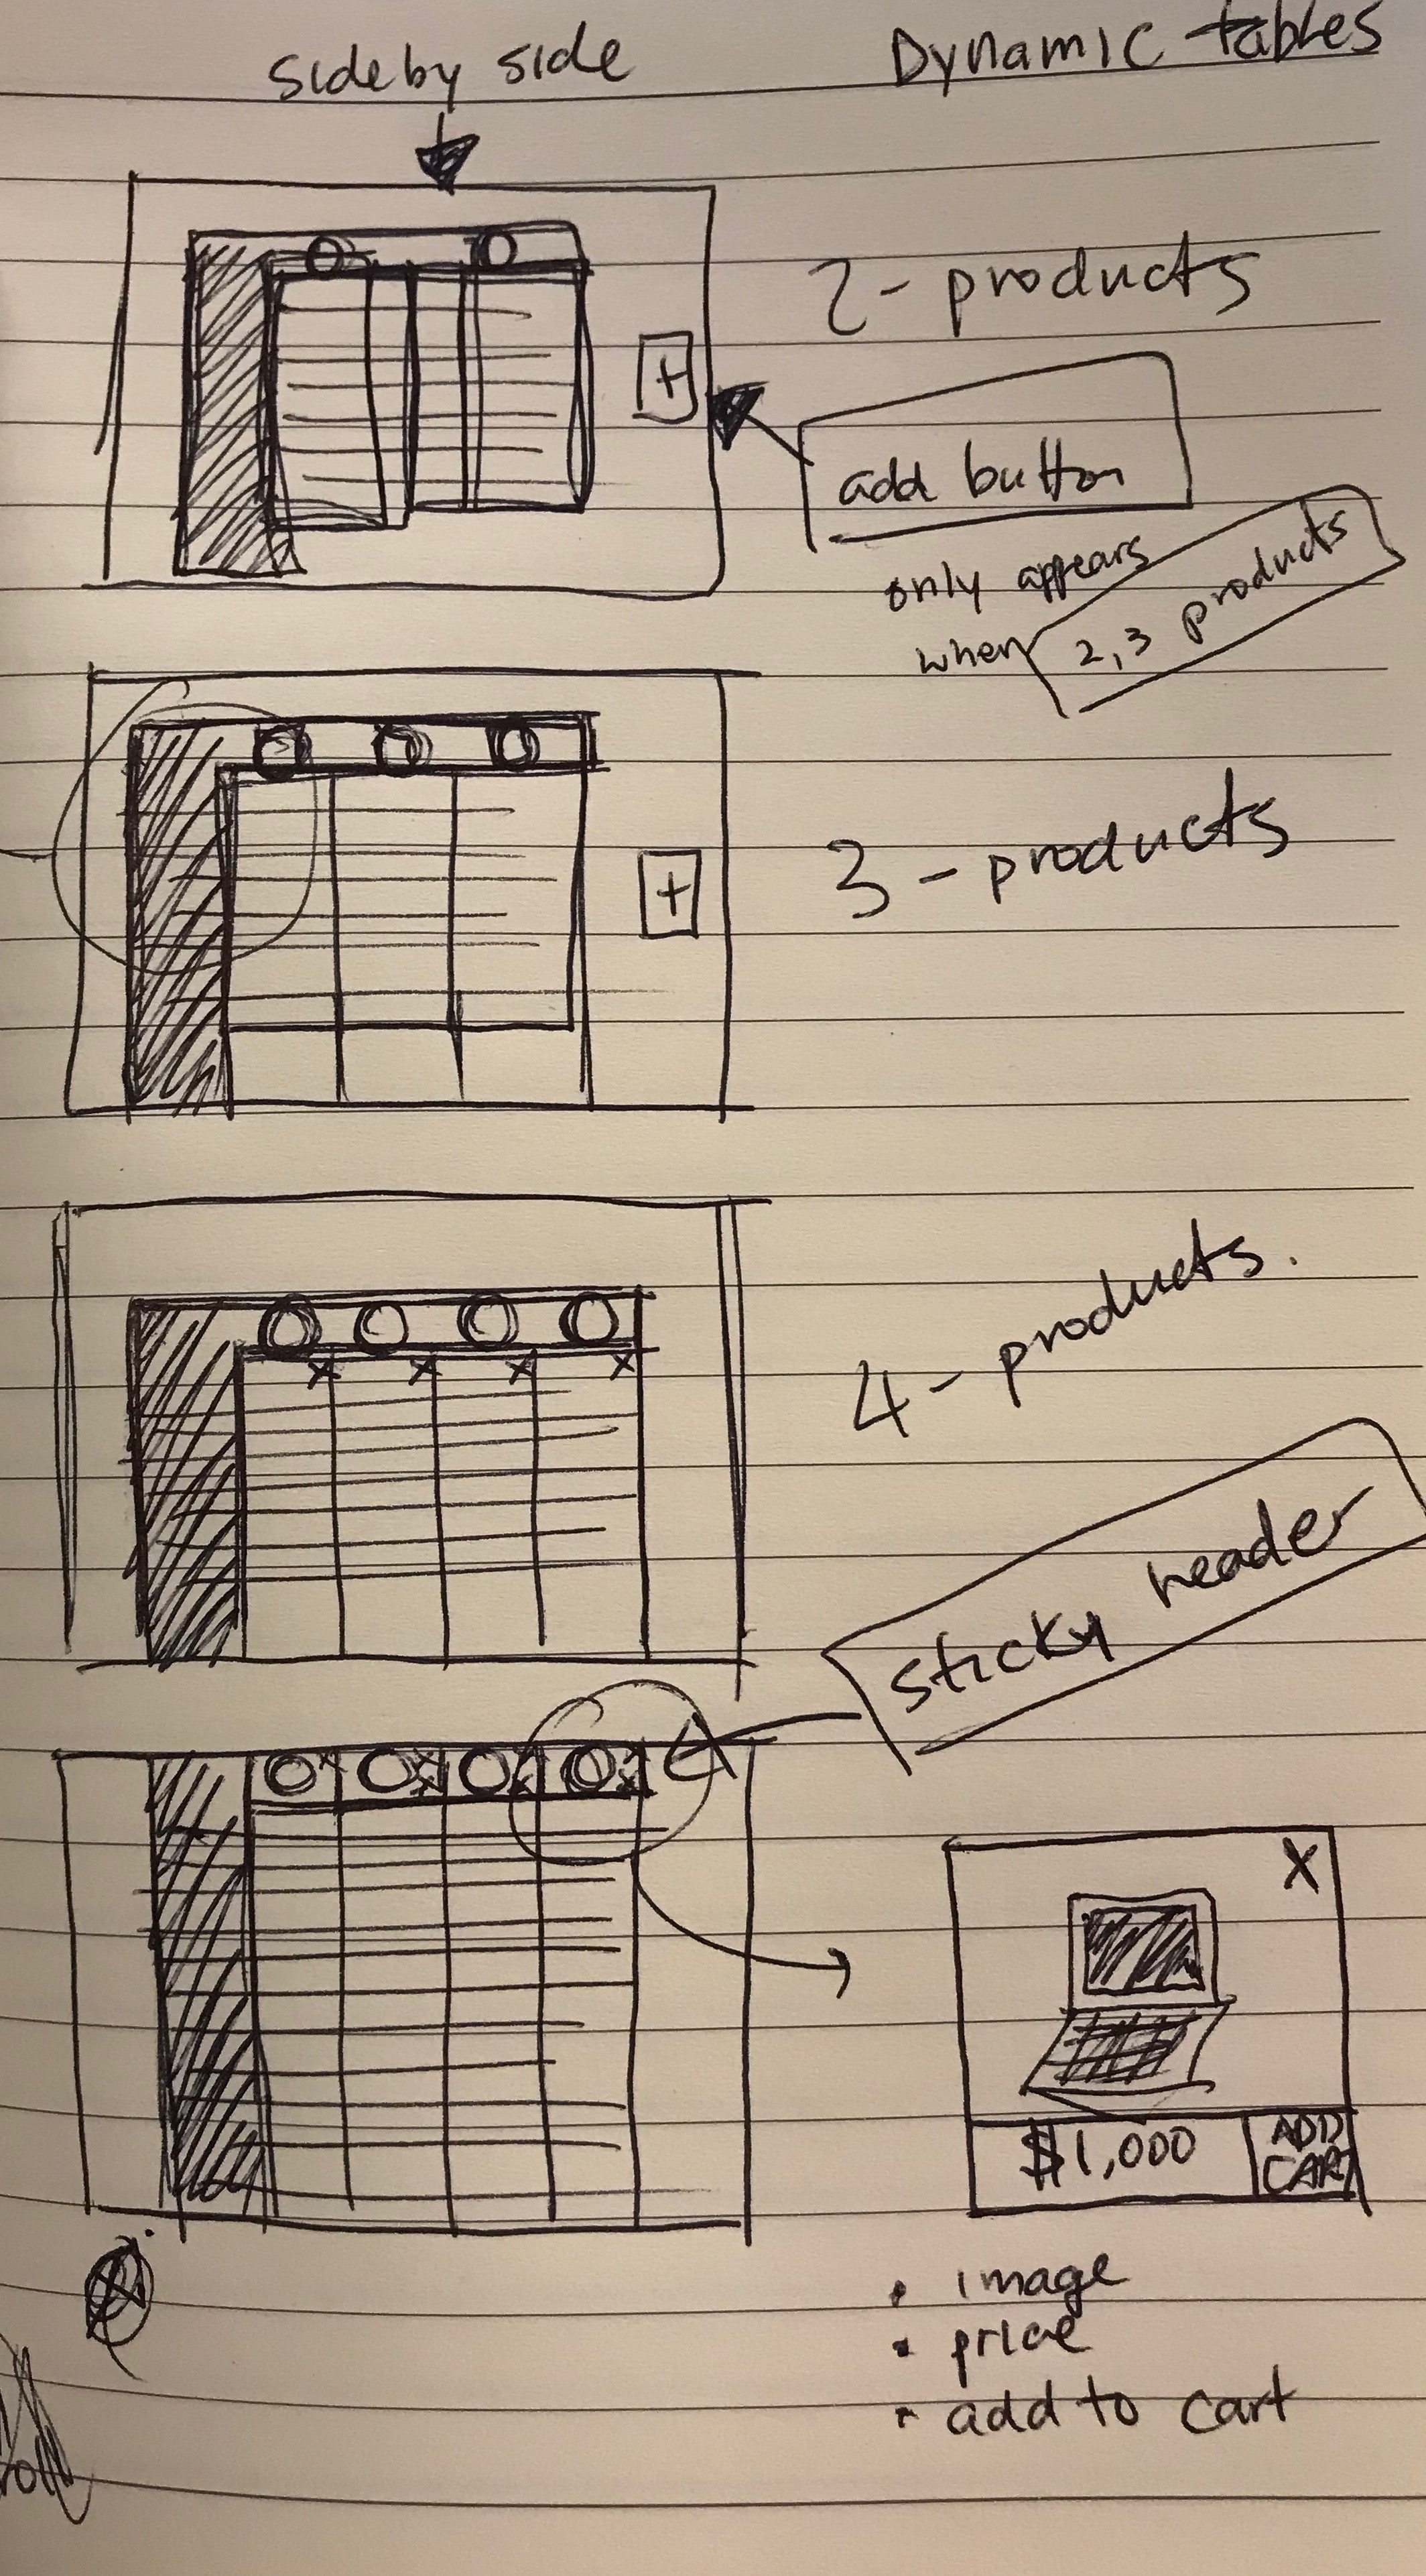 side by side
Dynamic tables
2 - products
+
add button
only appears
when 2,3 products
3 - products
+
4 - products.
x x x x
sticky header
X
$1,000
ADD
CART
• image
• price
• add to cart